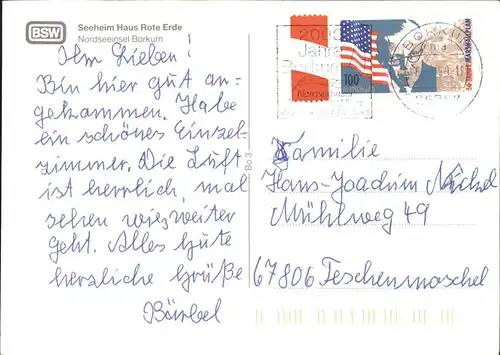 BSW
Seeheim Haus Rote Erde
Nordseeinsel Borkum
Ihr Lieben!
Bin hier gut an-
gekommen. Habe
ein schönes Einzel-
zimmer. Die Luft
ist herrlich, mal
sehen wies weiter
geht. Alles Gute
herzliche Grüße
Bärbel
Bo 3
2000
Jahre
Borkum
Nordsee
100
50 JAHRE MARSHALLPLAN
BORKUM
26757
Familie
Hans-Joachim Nickel
Mühlweg 49
67806 Teschenmoschel